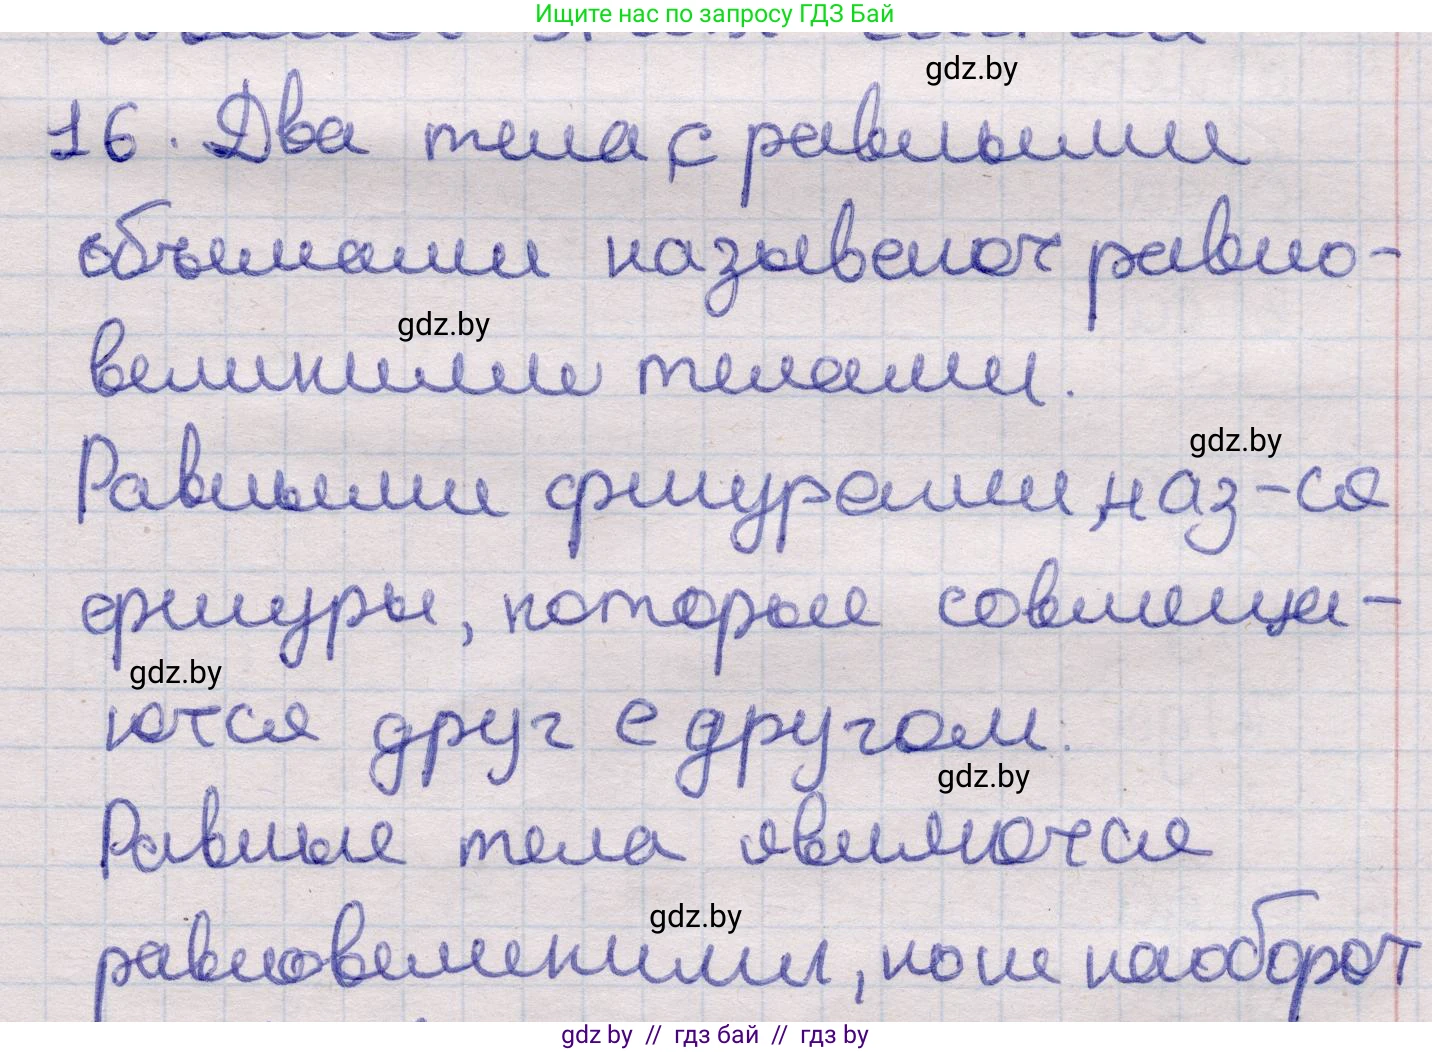 Ищите нас по запросу ГДЗ Бай
gdz.by
16. Два тела с равными
объемами называют равно-
gdz.by
великими телами.
gdz.by
Равными фигурами наз-ся
фигуры, которые совмеща-
gdz.by
ются друг с другом.
gdz.by
Равные тела являются
gdz.by
равновеликими, но не наоборот
gdz.by // гдз бай // гдз by